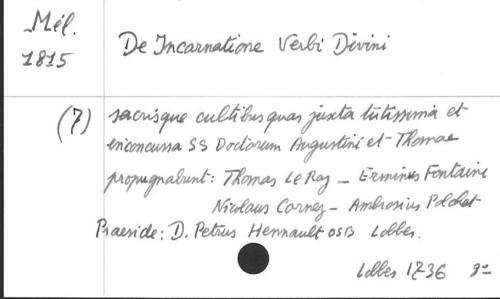 Mél.
1815
De Incarnatione Verbi Divini
(7) sacrisque cultibus quas juxta tutissima et
inconcussa SS Doctorum Augustini et Thomae
propugnabunt: Thomas Le Roy _ Erminus Fontaine
Nicolaus Carnez - Ambrosius Polchet
Praeside: D. Petrus Hennault OSB Lobbes.
Lobbes 1736 9°